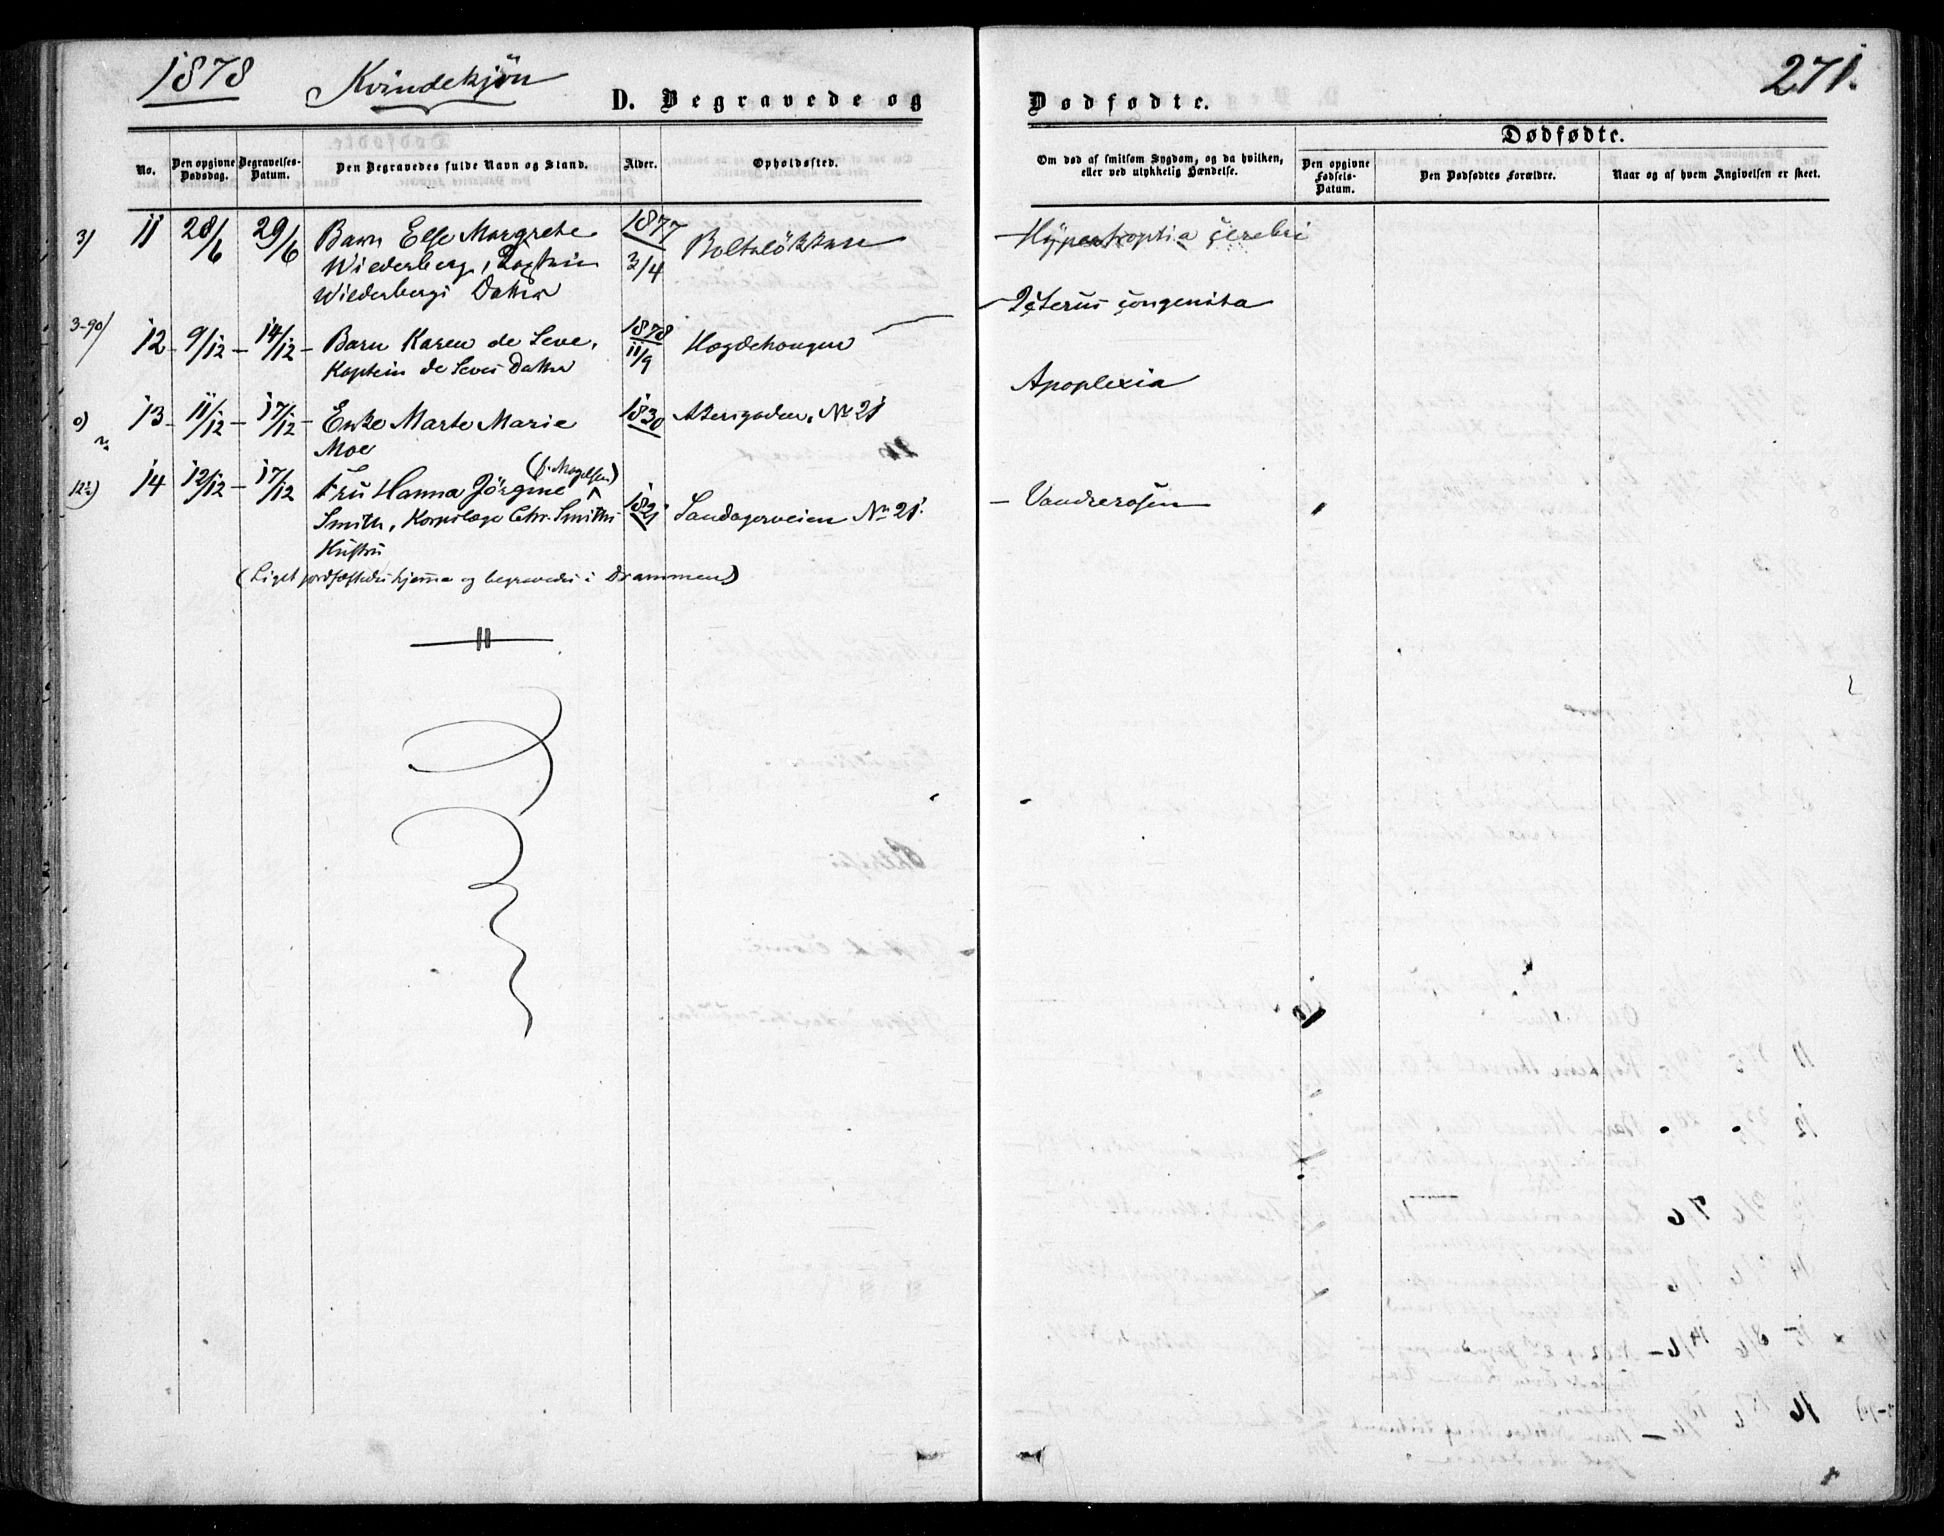 1878 Kvindekjön
D. Begravede og Dødfødte. 271.
Dødfødte.
No. Den opgivne Dødsdag. Begravelses-Datum. Den Begravedes fulde Navn og Stand. Alder. Opholdssted. Om død af smitsom Sygdom, og da hvilken, eller ved ulykkelig Hændelse. Den opgivne Fødsels-Datum. Den Dødfødtes Forældre. Naar og af hvem Angivelsen er skeet.
3) 11 28/6 29/6 Barn Else Margrethe 1877 3/4 Boltelökken Hypertroptia cerebri
Wiederberg,
Wiederbergs Datter
Icterus congenita
3-90) 12 - 9/12 - 14/12 - Barn Karen de Seve, 1878 11/9 Hægdehougen
Kaptein de Seves Datter
Apoplexia
0) 13 - 11/12 - 17/12 - Enke Marte Marie 1830 Akersgaden. No 21
Moe
(f. Mogelsen)
12½) 14 12/12 - 17/12 Fru Hanna Jörgine 1821 Sandagerveien No 21. - Vandrerosen
Smith, Korpslæge Chr. Smiths
Hustru
(Liget jordfæstedes hjemme og begravedes i Drammen)